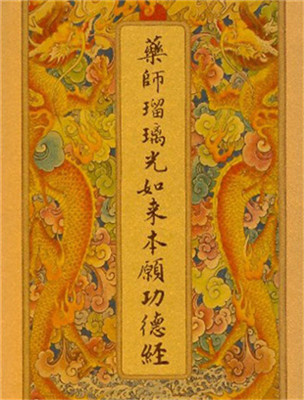 藥師瑠璃光如来本願功德經